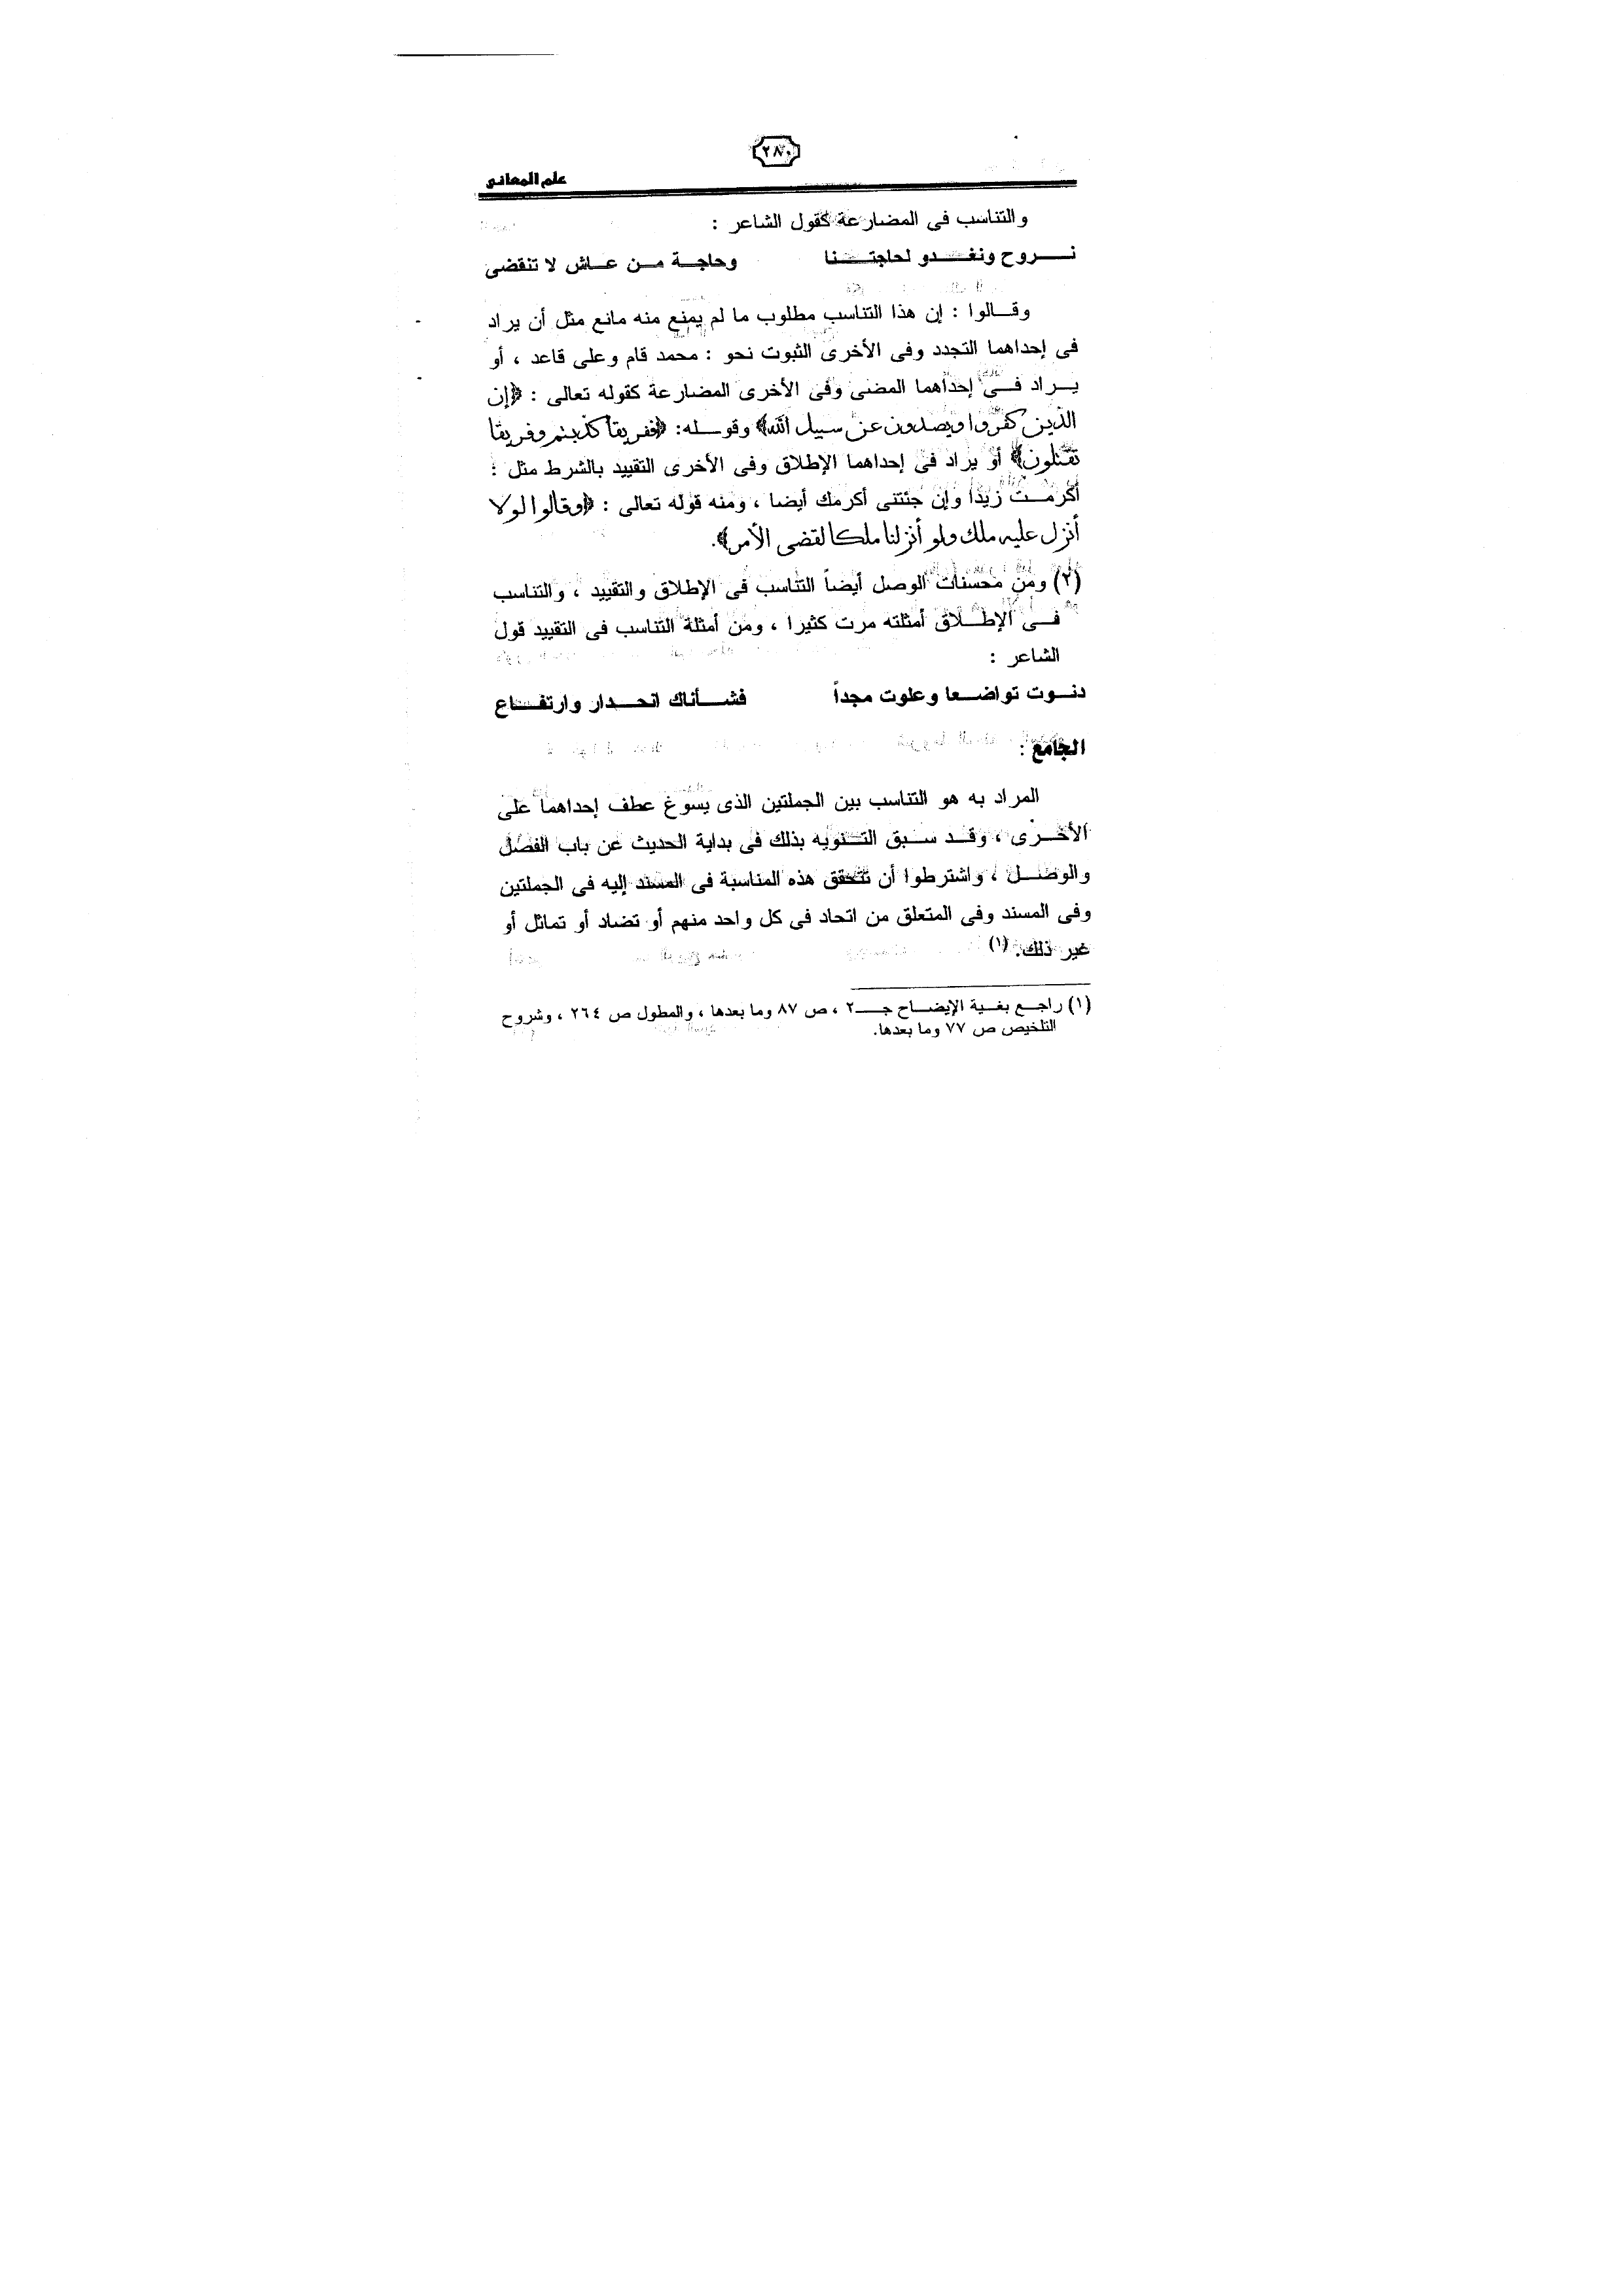 ٢٨٠
علم المعانى
والتناسب فى المضارعة كقول الشاعر :
نروح ونغدو لحاجتنا وحاجة من عاش لا تنقضى
وقالوا : إن هذا التناسب مطلوب ما لم يمنع منه مانع مثل أن يراد
فى إحداهما التجدد وفى الأخرى الثبوت نحو : محمد قام وعلى قاعد ، أو
يراد فى إحداهما المضى وفى الأخرى المضارعة كقوله تعالى : ﴿إن
الذين كفروا ويصدون عن سبيل الله﴾ وقوله: ﴿ففريقا كذبتم وفريقا
تقتلون﴾ أو يراد فى إحداهما الإطلاق وفى الأخرى التقييد بالشرط مثل :
أكرمت زيدا وإن جئتنى أكرمك أيضا ، ومنه قوله تعالى : ﴿وقالوا لولا
أنزل عليه ملك ولو أنزلنا ملكا لقضى الأمر﴾.
(٢) ومن محسنات الوصل أيضاً التناسب فى الإطلاق والتقييد ، والتناسب
فى الإطلاق أمثلته مرت كثيرا ، ومن أمثلة التناسب فى التقييد قول
الشاعر :
دنوت تواضعا وعلوت مجداً فشأناك انحدار وارتفاع
الجامع :
المراد به هو التناسب بين الجملتين الذى يسوغ عطف إحداهما على
الأخرى ، وقد سبق التنويه بذلك فى بداية الحديث عن باب الفصل
والوصل ، واشترطوا أن تتحقق هذه المناسبة فى المسند إليه فى الجملتين
وفى المسند وفى المتعلق من اتحاد فى كل واحد منهم أو تضاد أو تماثل أو
غير ذلك. (١)
(١) راجع بغية الإيضاح جـ٢ ، ص ٨٧ وما بعدها ، والمطول ص ٢٦٤ ، وشروح
التلخيص ص ٧٧ وما بعدها.